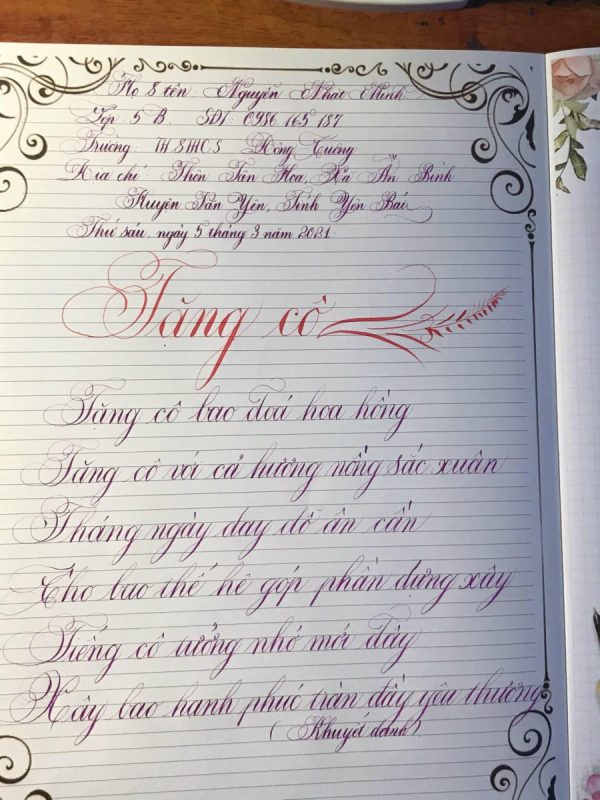 Họ & tên: Nguyễn Nhật Minh
Lớp: 5 B. SĐT: 0986 165 187
Trường: TH & THCS Đông Cuông
Địa chỉ: Thôn Tân Hoa, Xã An Bình
Huyện Văn Yên, Tỉnh Yên Bái
Thứ sáu, ngày 5 tháng 3 năm 2021
Tặng cô
Tặng cô bao đoá hoa hồng
Tặng cô với cả hương nồng sắc xuân
Tháng ngày dạy dỗ ân cần
Cho bao thế hệ góp phần dựng xây
Tiếng cô tưởng nhớ mới đây
Xây bao hạnh phúc tràn đầy yêu thương
( Khuyết danh )